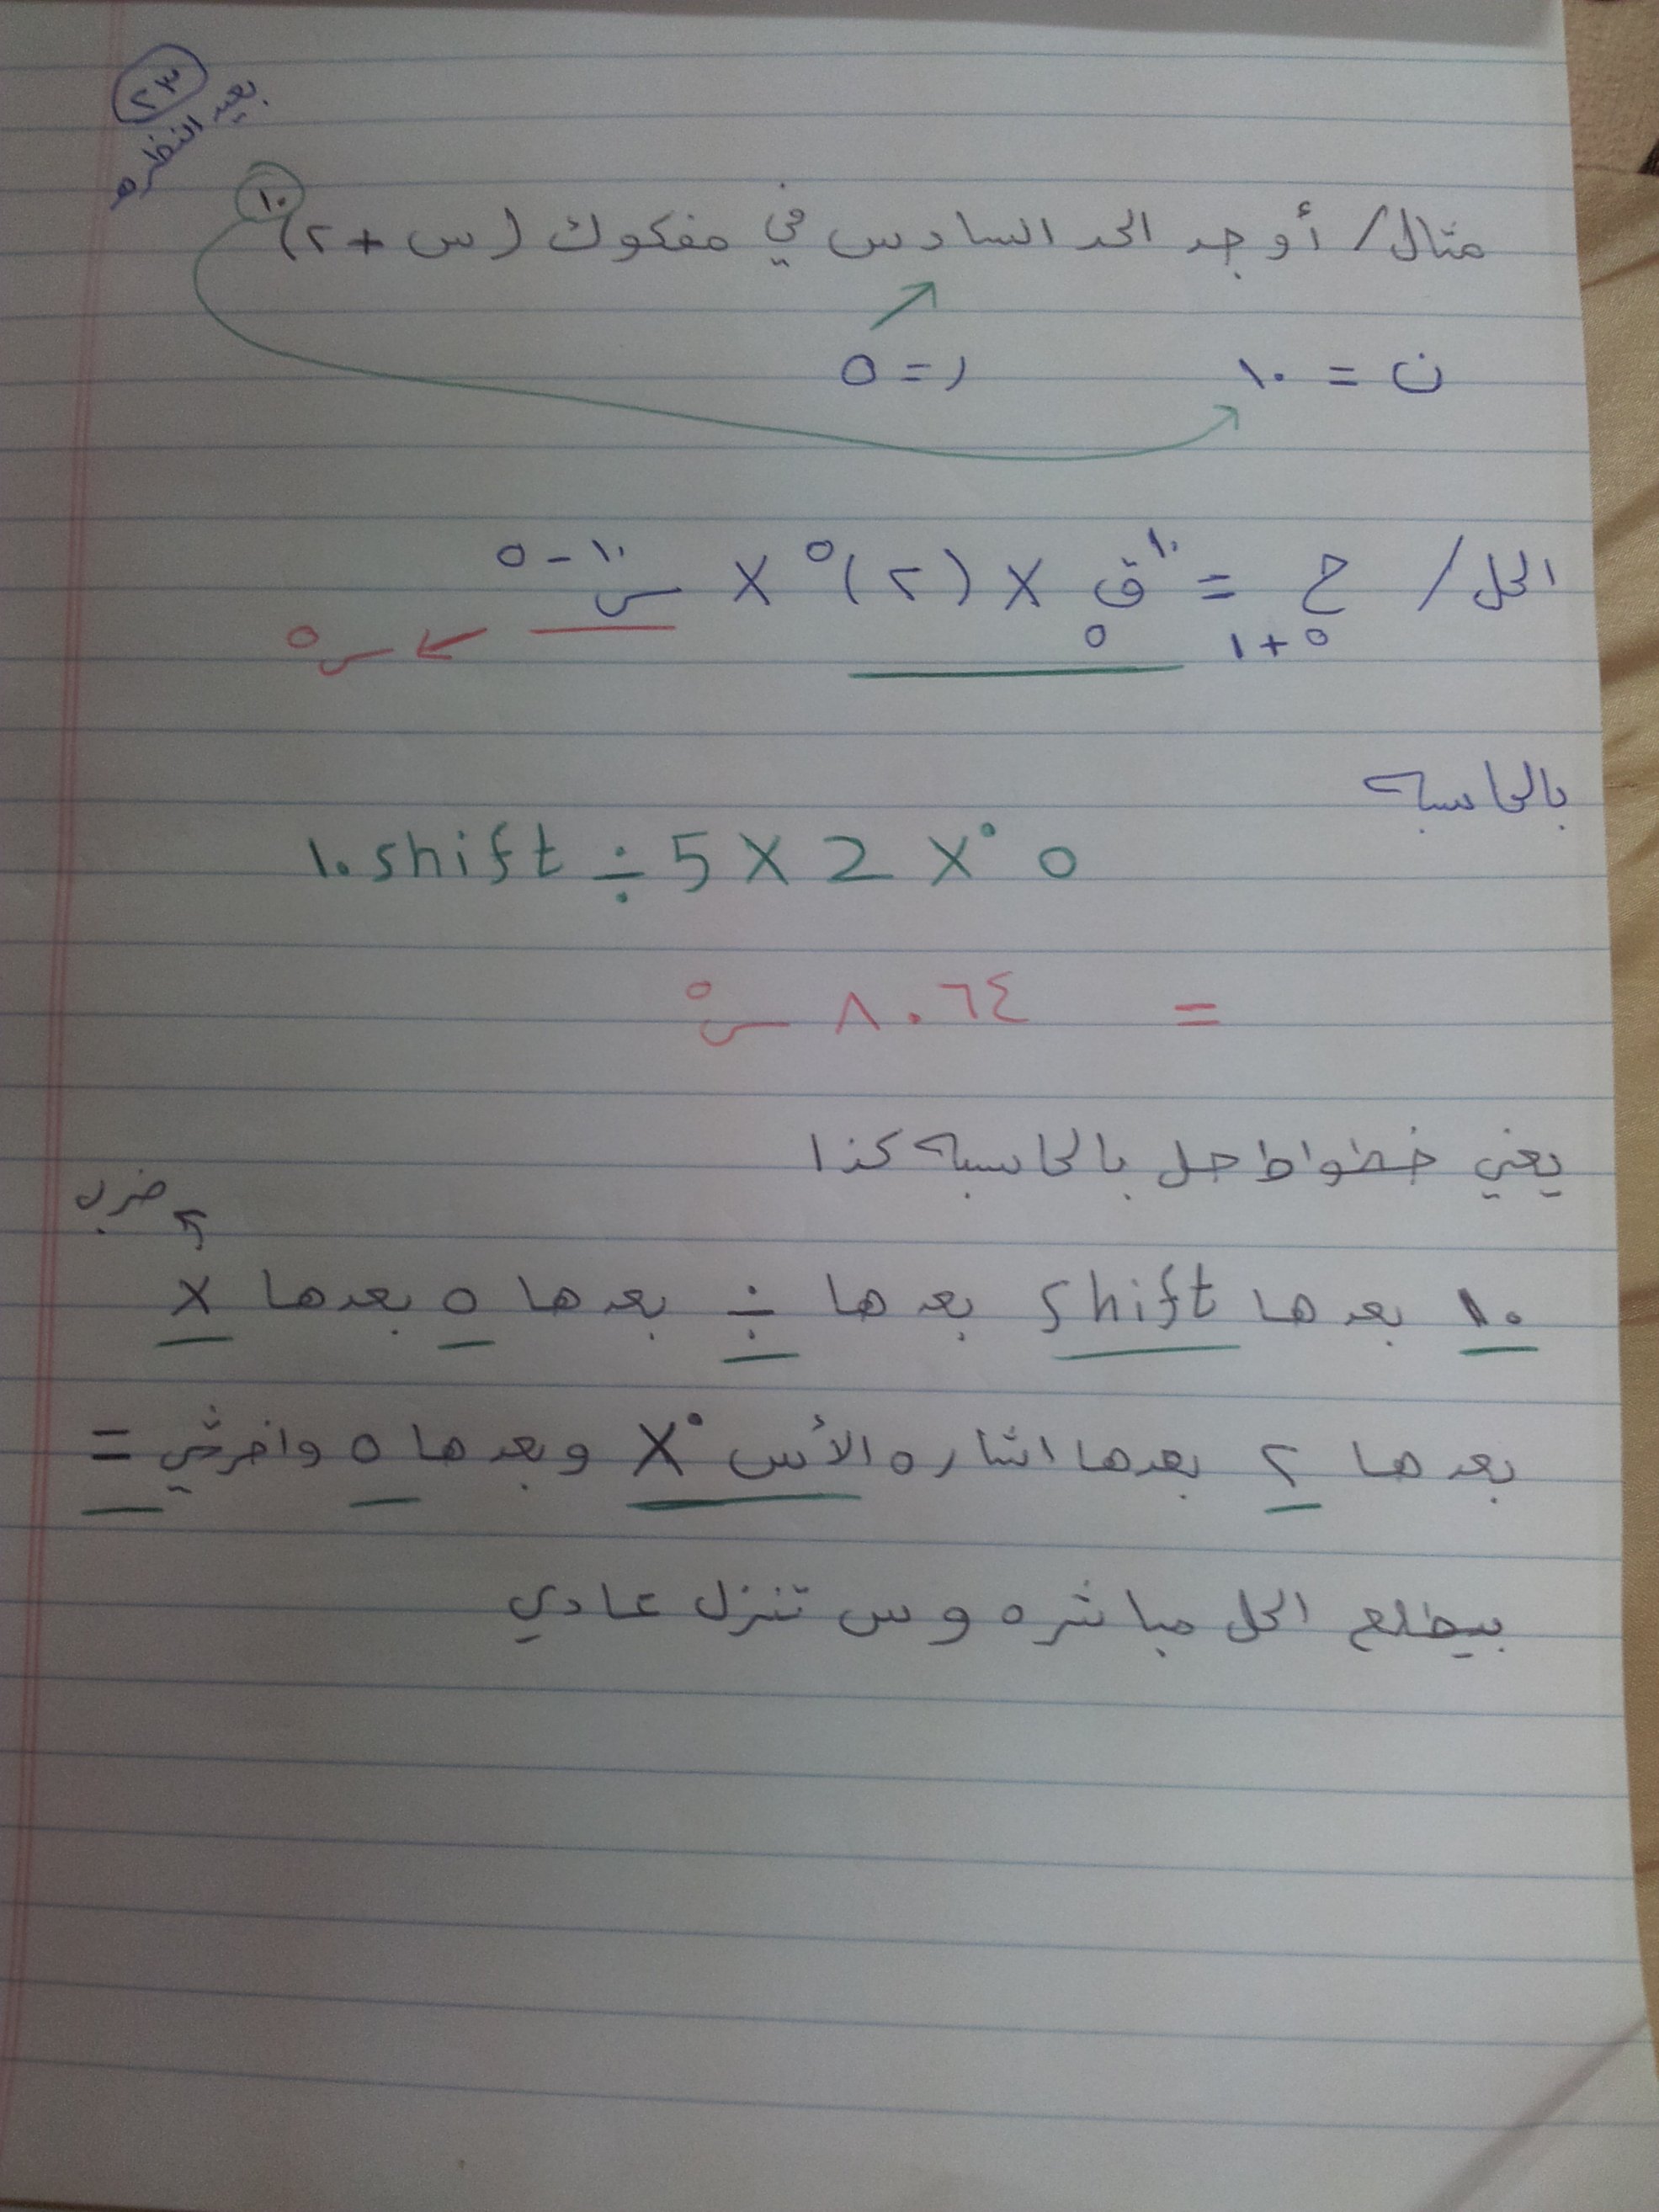 ٢٣
مثال/ أوجد الحد السادس في مفكوك (س + ٢)^١٠
ن = ١٠ ر = ٥
الحل/ ح ٥+١ = ١٠ ق ٥ × (٢)^٥ × س^١٠-٥ ← س^٥
بالحاسبه
١٠ shift ÷ 5 X 2 X° ٥
= ٨٠٦٤ س^٥
يعني خطواط حل بالحاسبه كذا
١٠ بعدها shift بعدها ÷ بعدها ٥ بعدها × ضرب
بعدها ٢ بعدها اشاره الأس X° وبعدها ٥ واخرشي =
بيطلع الحل مباشره و س تنزل عادي